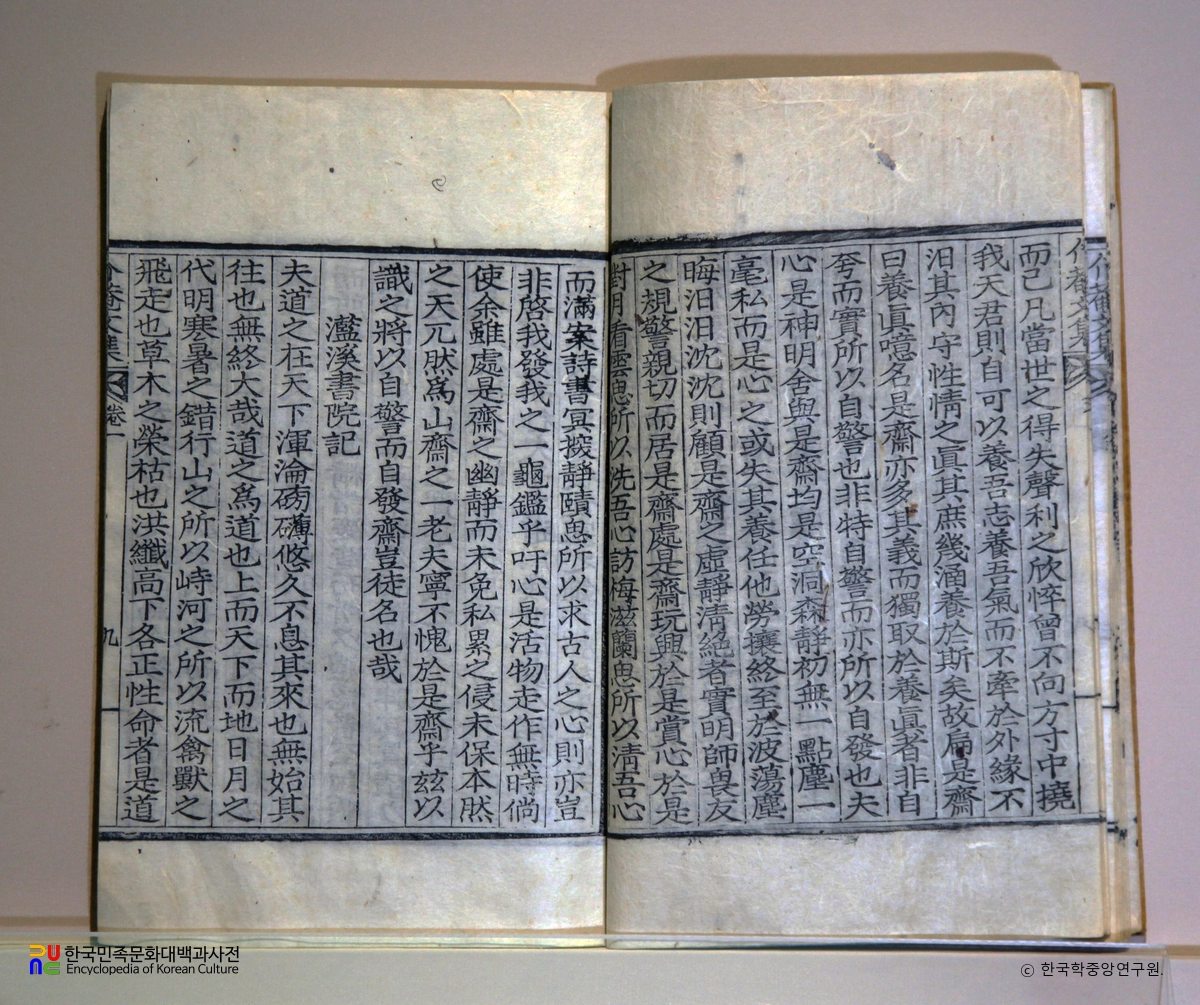 而已凡當世之得失聲利之欣悴曾不向方寸中撓
我天君則自可以養吾志養吾氣而不牽於外緣不
汩其內守性情之眞其庶幾涵養於斯矣故扁是齋
曰養眞噫名是齋亦多其義而獨取於養眞者非自
夸而實所以自警也非特自警而亦所以自發也夫
心是神明舍與是齋均是空洞森靜初無一點塵一
毫私而是心之或失其養任他勞攘終至於波蕩塵
晦汨汨沈沈則顧是齋之虛靜淸絕者實明師畏友
之規警親切而居是齋處是齋玩興於是賞心於是
對月看雲思所以洗吾心訪梅滋蘭思所以淸吾心
而滿案詩書冥搜靜賾思所以求古人之心則亦豈
非啓我發我之一龜鑑乎吁心是活物走作無時倘
使余雖處是齋之幽靜而未免私累之侵未保本然
之天兀然爲山齋之一老夫寧不愧於是齋乎玆以
識之將以自警而自發齋豈徒名也哉
灆溪書院記
夫道之在天下渾淪磅礴悠久不息其來也無始其
往也無終大哉道之爲道也上而天下而地日月之
代明寒暑之錯行山之所以峙河之所以流禽獸之
飛走也草木之榮枯也洪纖高下各正性命者是道
菴文集
卷一
九
한국민족문화대백과사전
Encyclopedia of Korean Culture
ⓒ 한국학중앙연구원.